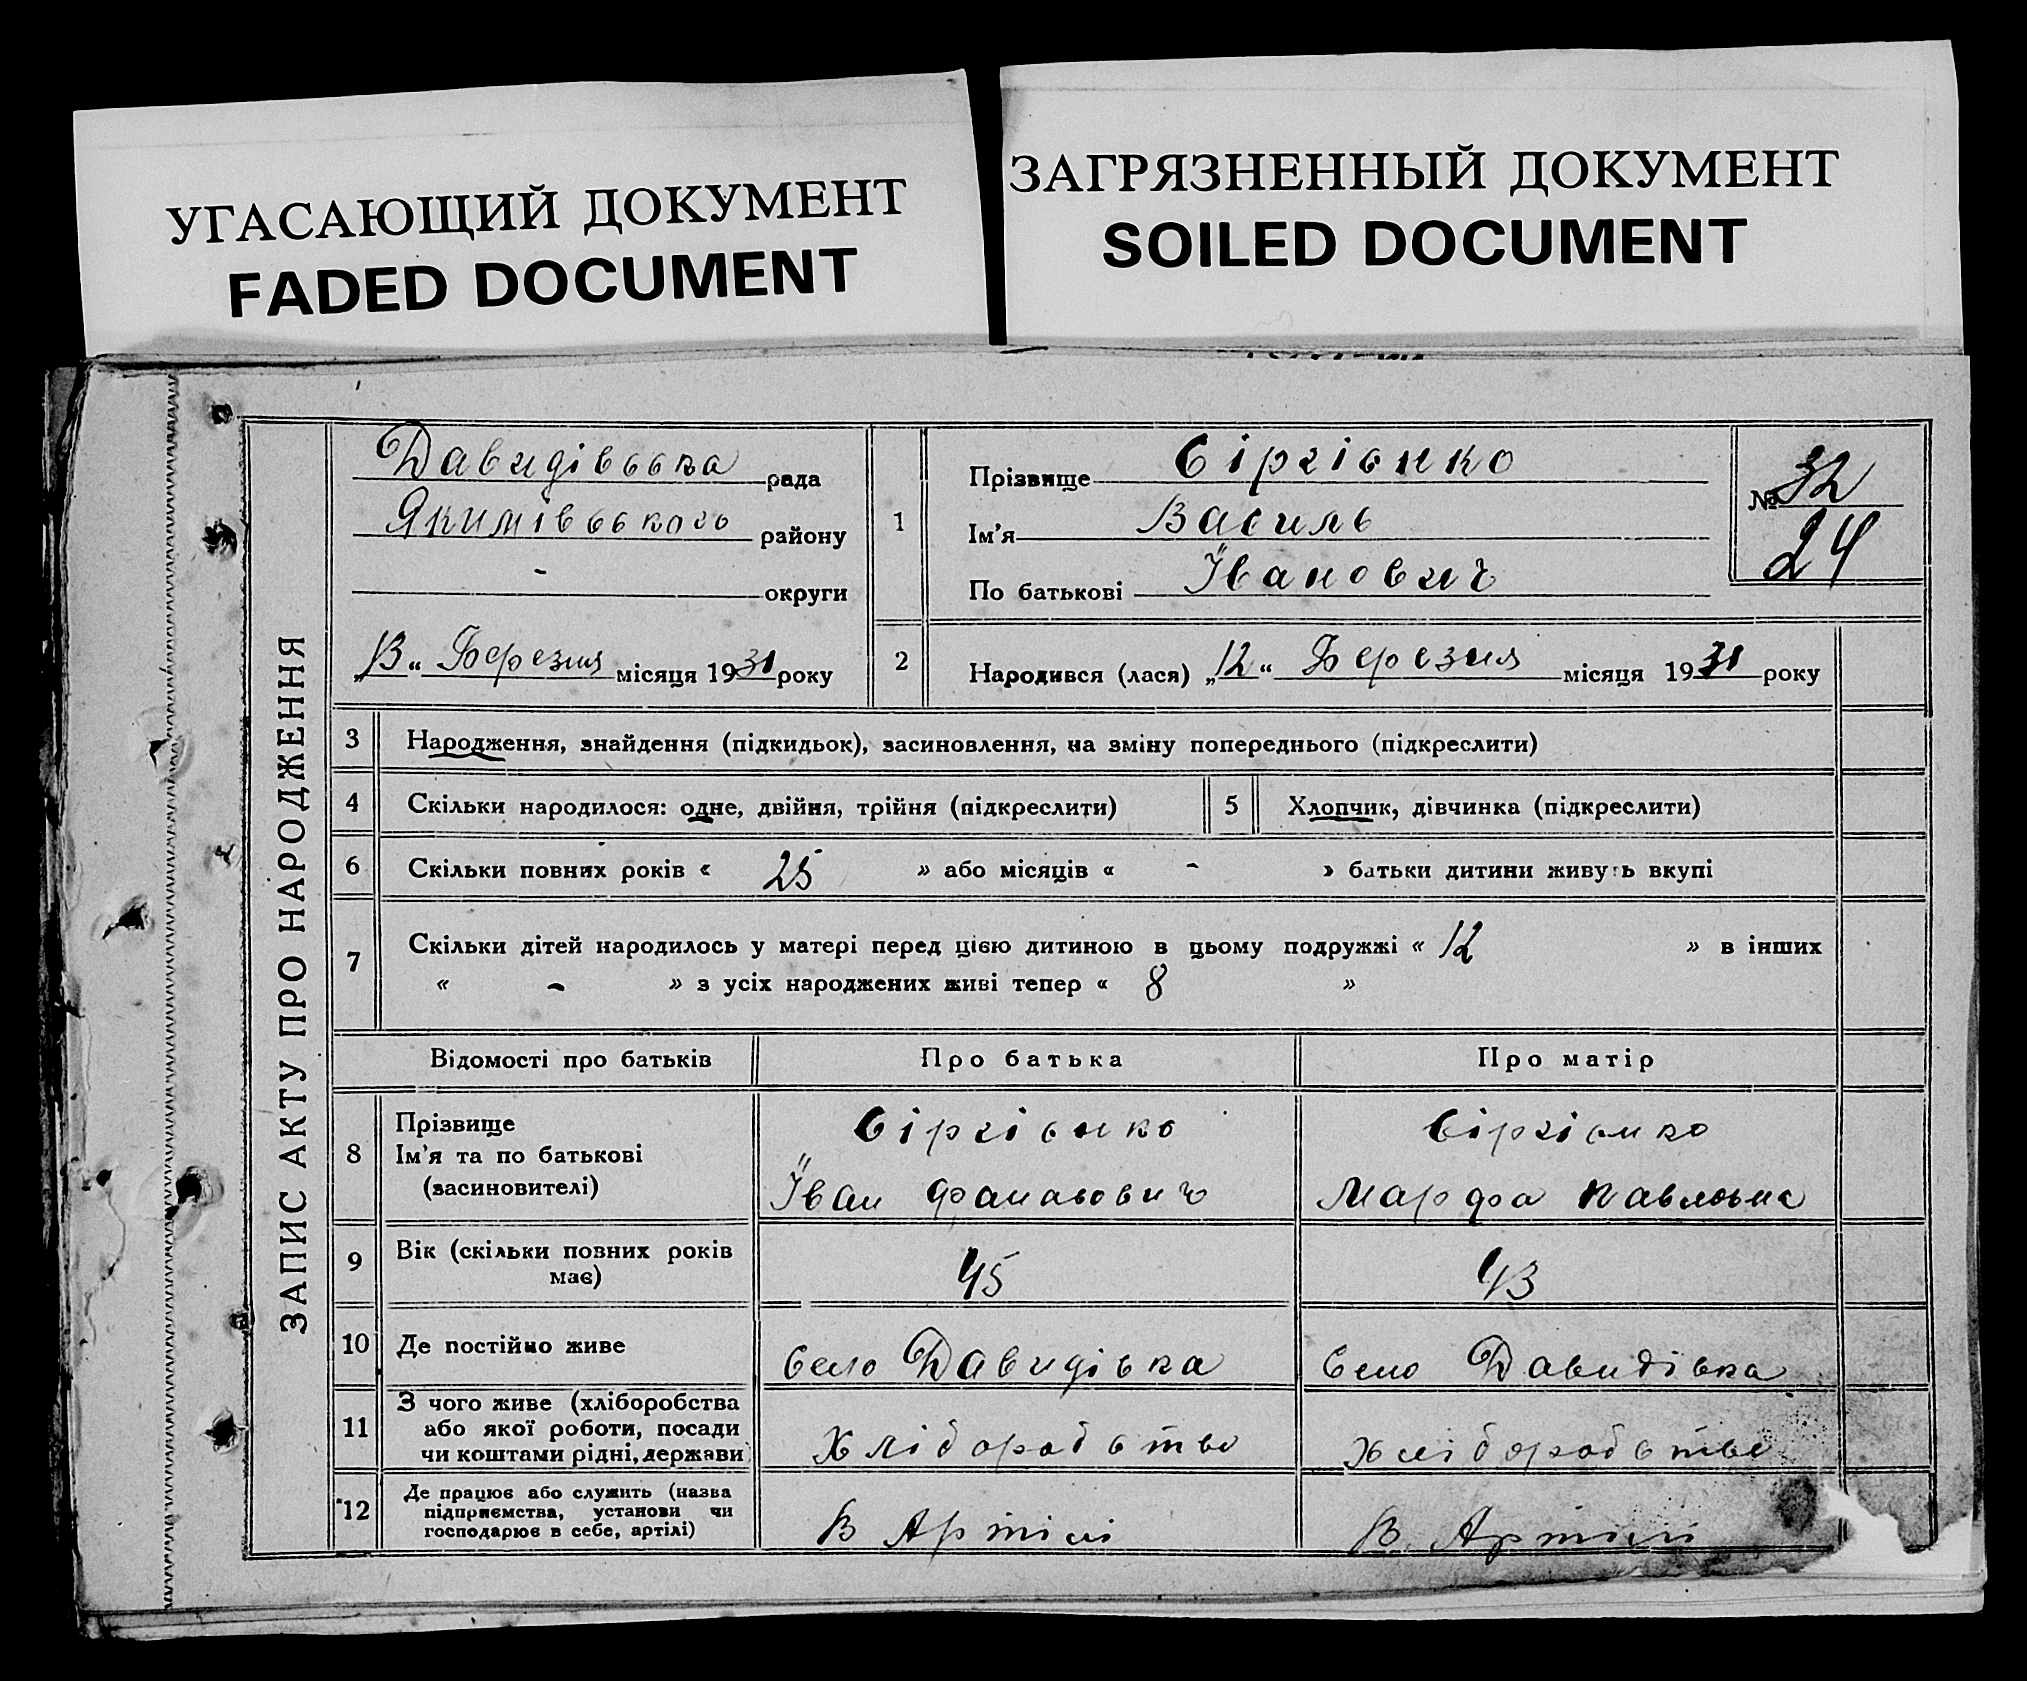 УГАСАЮЩИЙ ДОКУМЕНТ
FADED DOCUMENT
ЗАГРЯЗНЕННЫЙ ДОКУМЕНТ
SOILED DOCUMENT
ЗАПИС АКТУ ПРО НАРОДЖЕННЯ
Давидівська рада
Якимівського района району
- округи
„13“ Березня місяця 1931 року
1 Прізвище Сіргієнко
Ім'я Василь
По батькові Іванович
№ 32
24
2 Народився (лася) „12“ Березня місяця 1931 року
3 Народження, знайдення (підкидьок), засиновлення, на зміну попереднього (підкреслити)
4 Скільки народилося: одне, двійня, трійня (підкреслити) 5 Хлопчик, дівчинка (підкреслити)
6 Скільки повних років « 25 » або місяців « - » батьки дитини живуть вкупі
7 Скільки дітей народилось у матері перед цією дитиною в цьому подружжі « 12 » в інших
« - » з усіх народжених живі тепер « 8 »
Відомості про батьків Про батька Про матір
8 Прізвище
Ім'я та по батькові
(засиновителі)
Сіргієнко
Іван
Сіргієнко
Марфа Павловна
9 Вік (скільки повних років
має)
45 43
10 Де постійно живе село Давидівка село Давидівка
11 З чого живе (хліборобства
або якої роботи, посади
чи коштами рідні, держави
Хліборобство Хліборобство
12 Де працює або служить (назва
підприємства, установи чи
господарює в себе, артілі)
В Артілі В Артілі